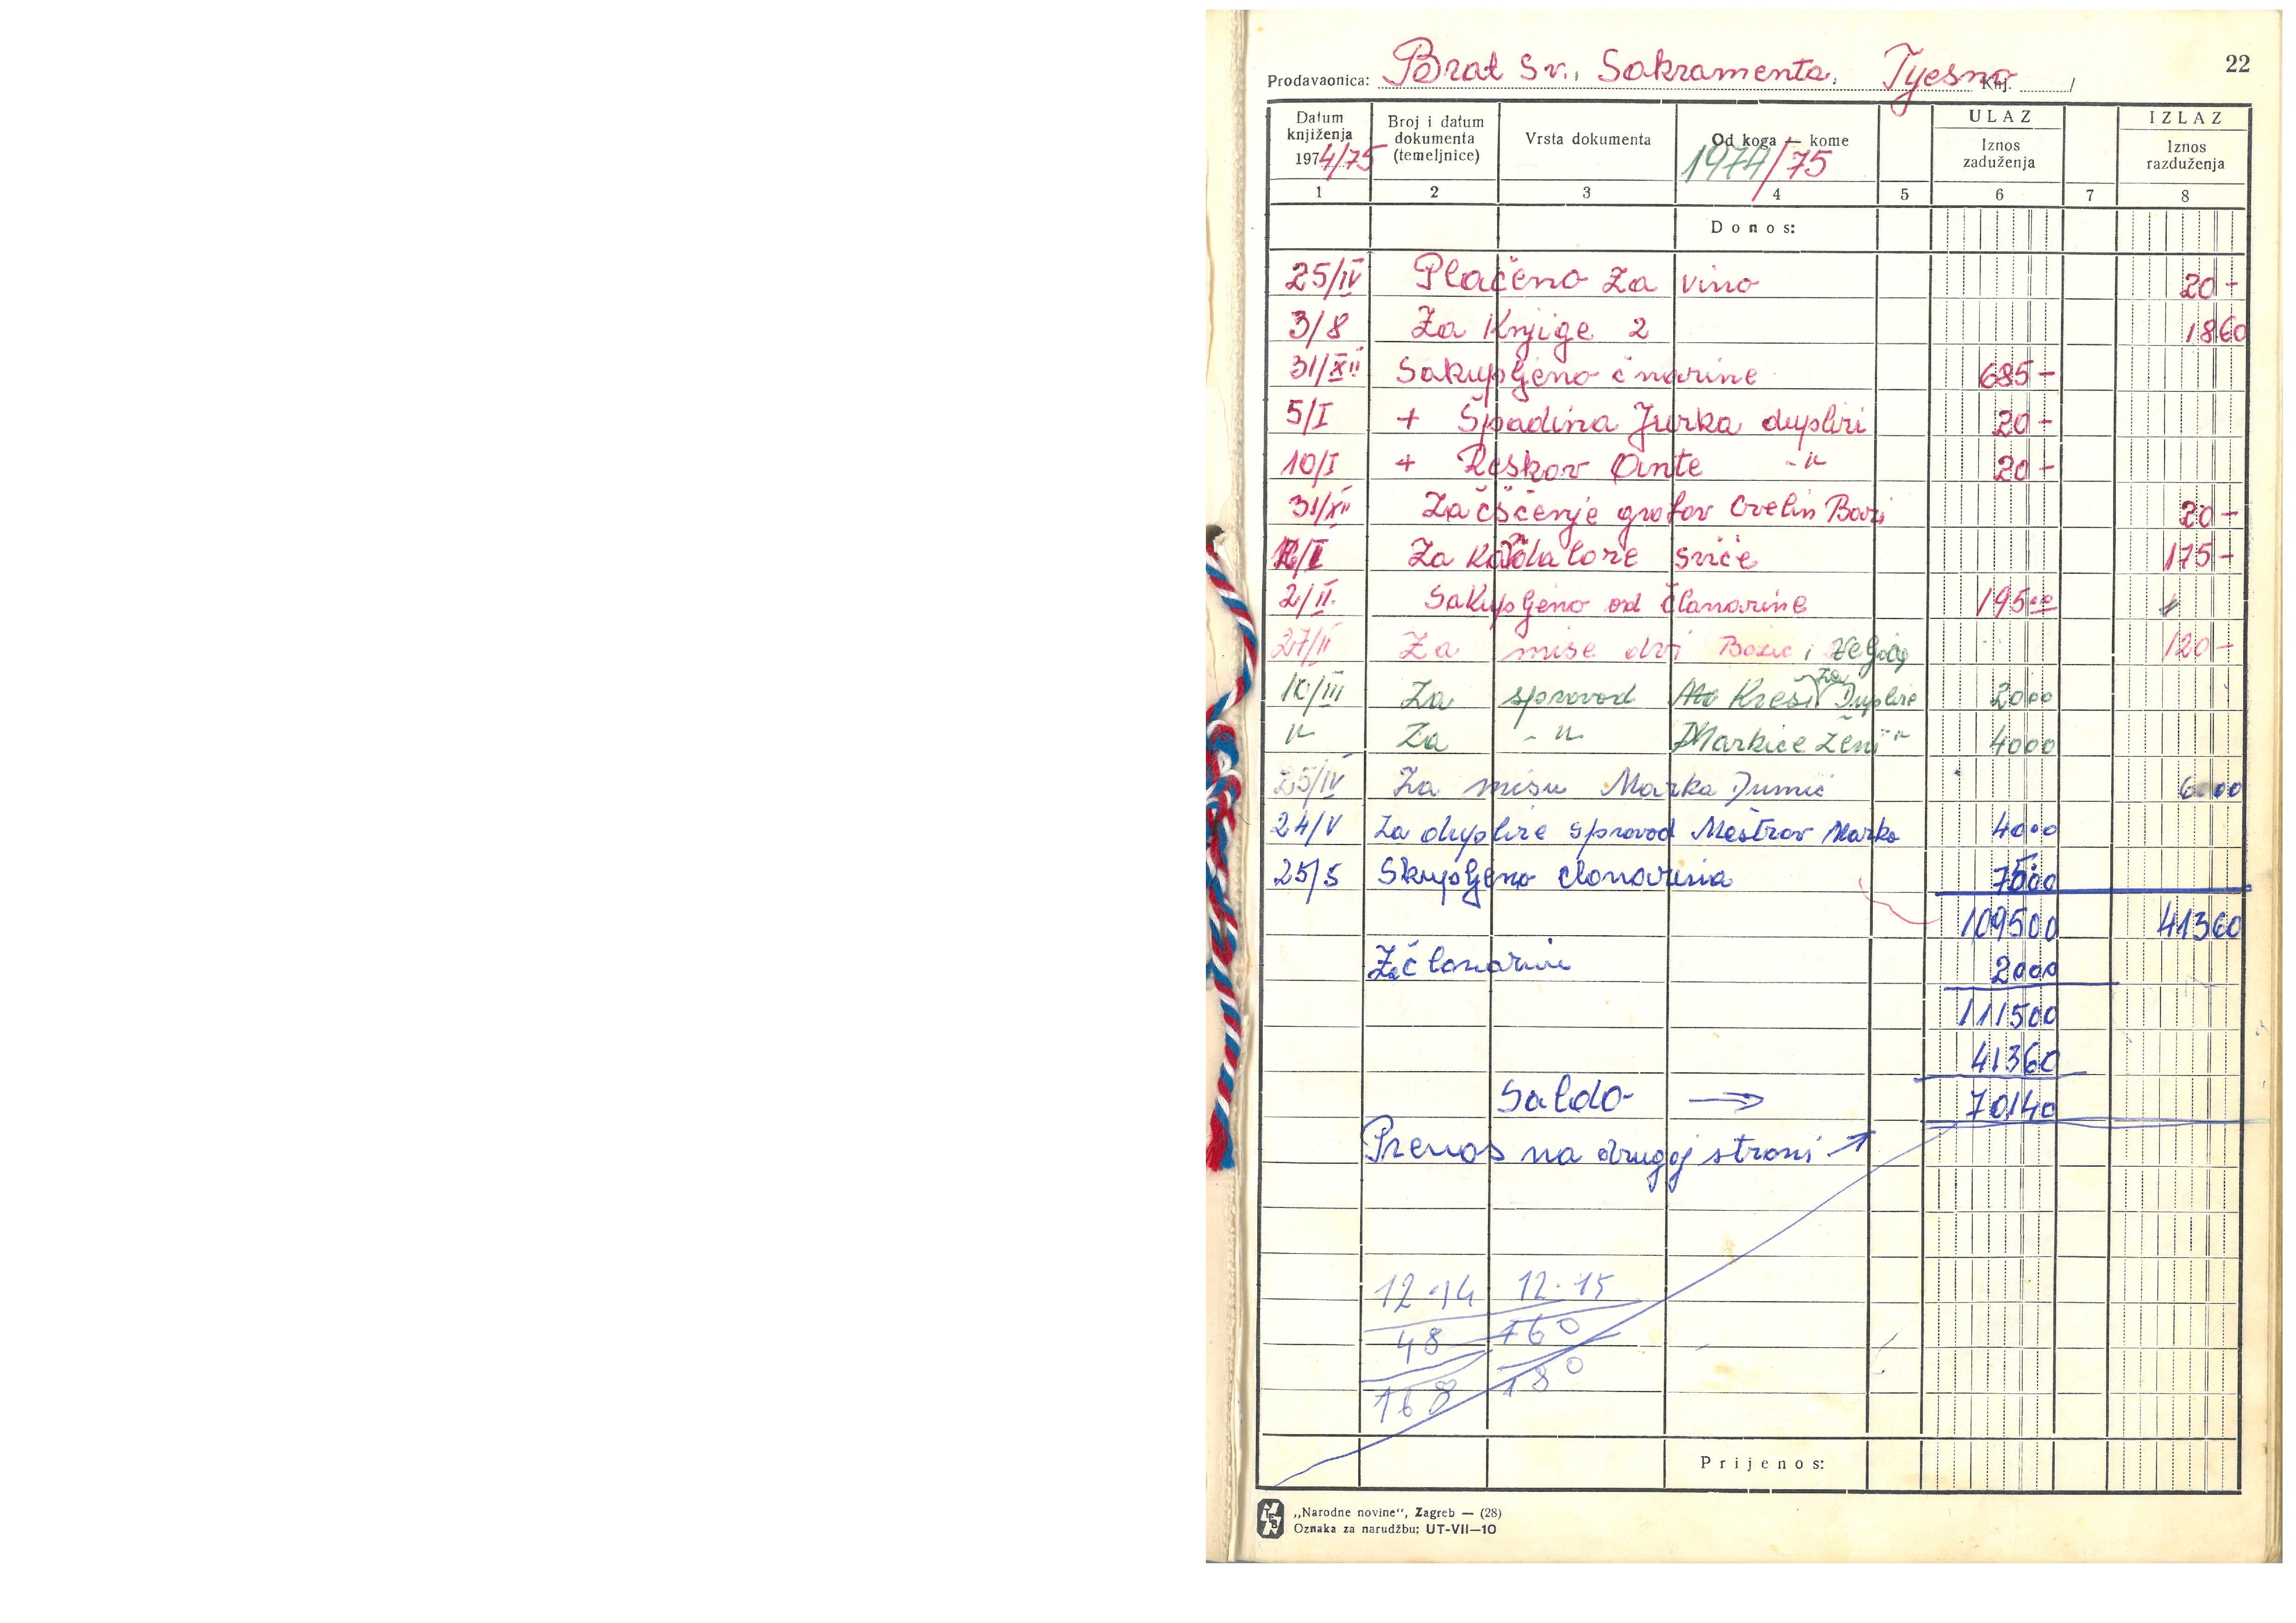 22
Prodavaonica: Brat Sv. Sakramenta. Tjesno Knj. /
Datum knjiženja 1974/75 Broj i datum dokumenta (temeljnice) Vrsta dokumenta Od koga — kome 1974/75 ULAZ Iznos zaduženja IZLAZ Iznos razduženja
1 2 3 4 5 6 7 8
Donos:
25/IV Plačeno Za vino 20-
3/8 Za Knjige 2 1860
31/XII Sakupljeno čnarine 685-
5/I + Špadina Jurka dupliri 20-
10/I + Reskov Ante -"- 20-
31/XII Začšćenje grobov Crvelin 20-
Za sviće 175-
2/II. Sakupljeno od članarine 19500
27/II Za mise dvi Bozic i 120-
10/III Za sprovod Kresi za Duplire 2000
" Za -"- Markice ženi " 4000
25/IV Za misu Marka Jumić 6000
24/V Za duplire sprovod Meštrov Marko 4000
25/5 Skupljeno clonarina 7500
109500 41360
Za članarine 2000
111500
41360
Saldo → 70140
Prenos na drugoj strani
12·14 12·15
48 160
168 180
Prijenos:
„Narodne novine", Zagreb — (28)
Oznaka za narudžbu: UT-VII—10